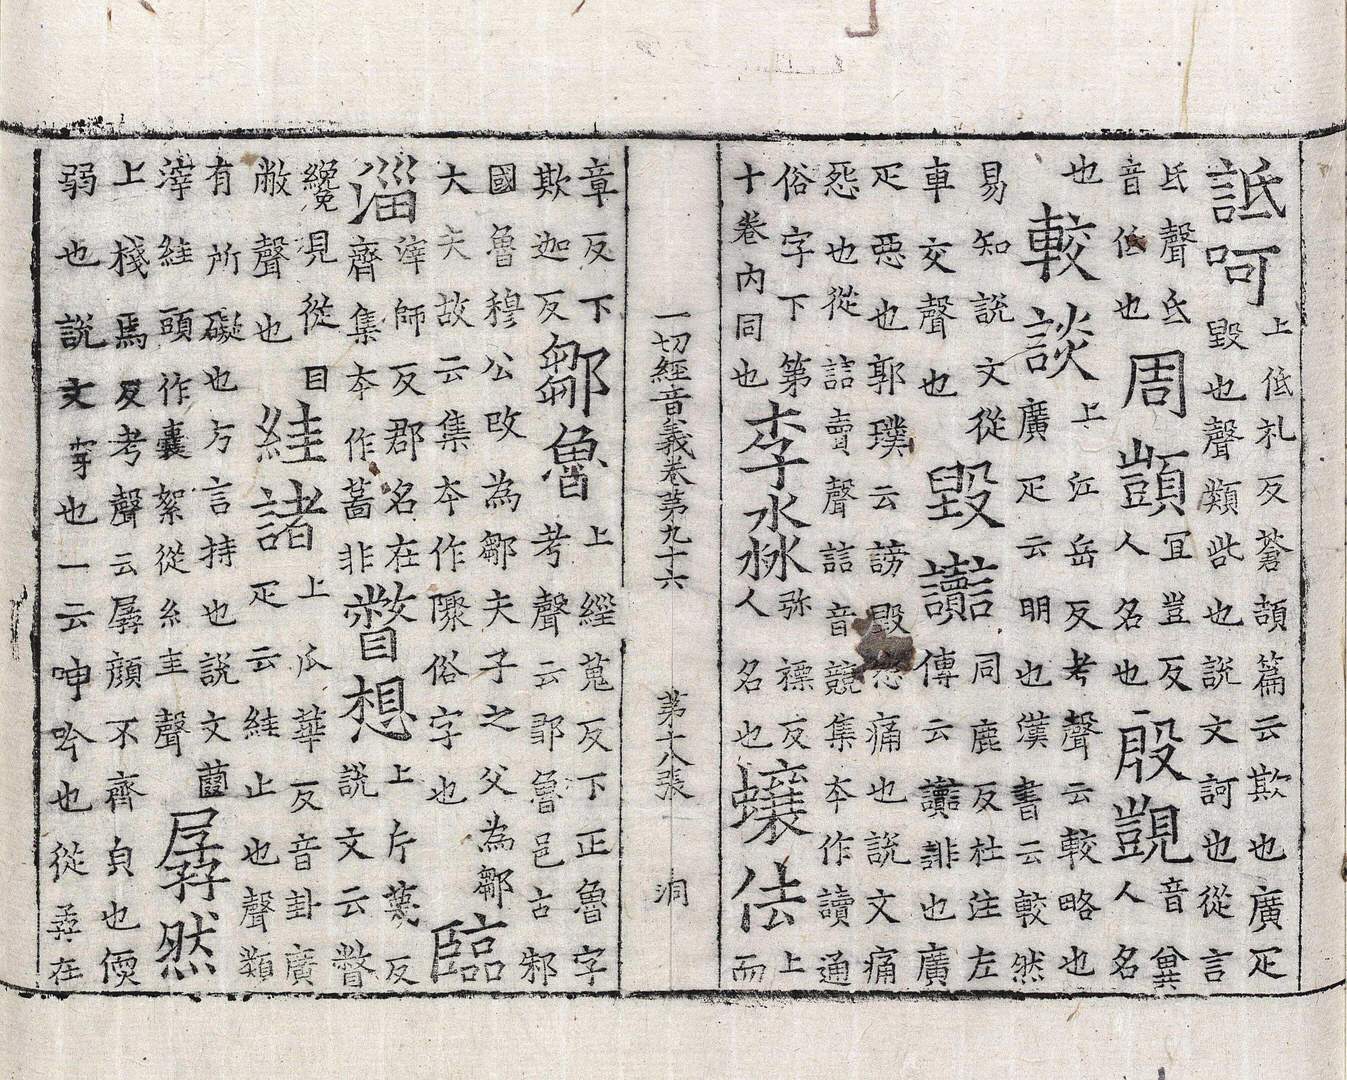 詆呵
上低礼反蒼頡篇云欺也廣疋
毀也聲類呰也說文訶也從言
氐聲氐
音低也
周顗
冝豈反
人名也
殷覬
音兾
人名
也
較談
上江岳反考聲云較略也
廣疋云明也漢書云較然
易知說文從
車交聲也
毀讟
同鹿反杜注左
傳云讟誹也廣
疋惡也郭璞云謗毀怨痛也說文痛
怨也從誩賣聲誩音競集夲作讀通
俗字下第
十卷內同也
李淼
弥褾反
人名也
蠰佉
上
而
一切經音義卷苐九十六 苐十八張 洞
章反下
欺迦反
鄒魯
上經蒐反下正魯字
考聲云郰魯邑古邾
國魯穆公改為鄒夫子之父為鄒
大夫故云集夲作隟俗字也
臨
淄
滓師反郡名在
齊集夲作菑非
瞥想
上片蔑反
說文云瞥
纔見從目
敝聲也
絓諸
上瓜華反音卦廣
疋云絓止也聲類
有所礙也方言持也說文
滓絓頭作囊絮從糸圭聲
孱然
上棧焉反考聲云孱顔不齊皃也偄
弱也說文也一云呻吟也從孨在